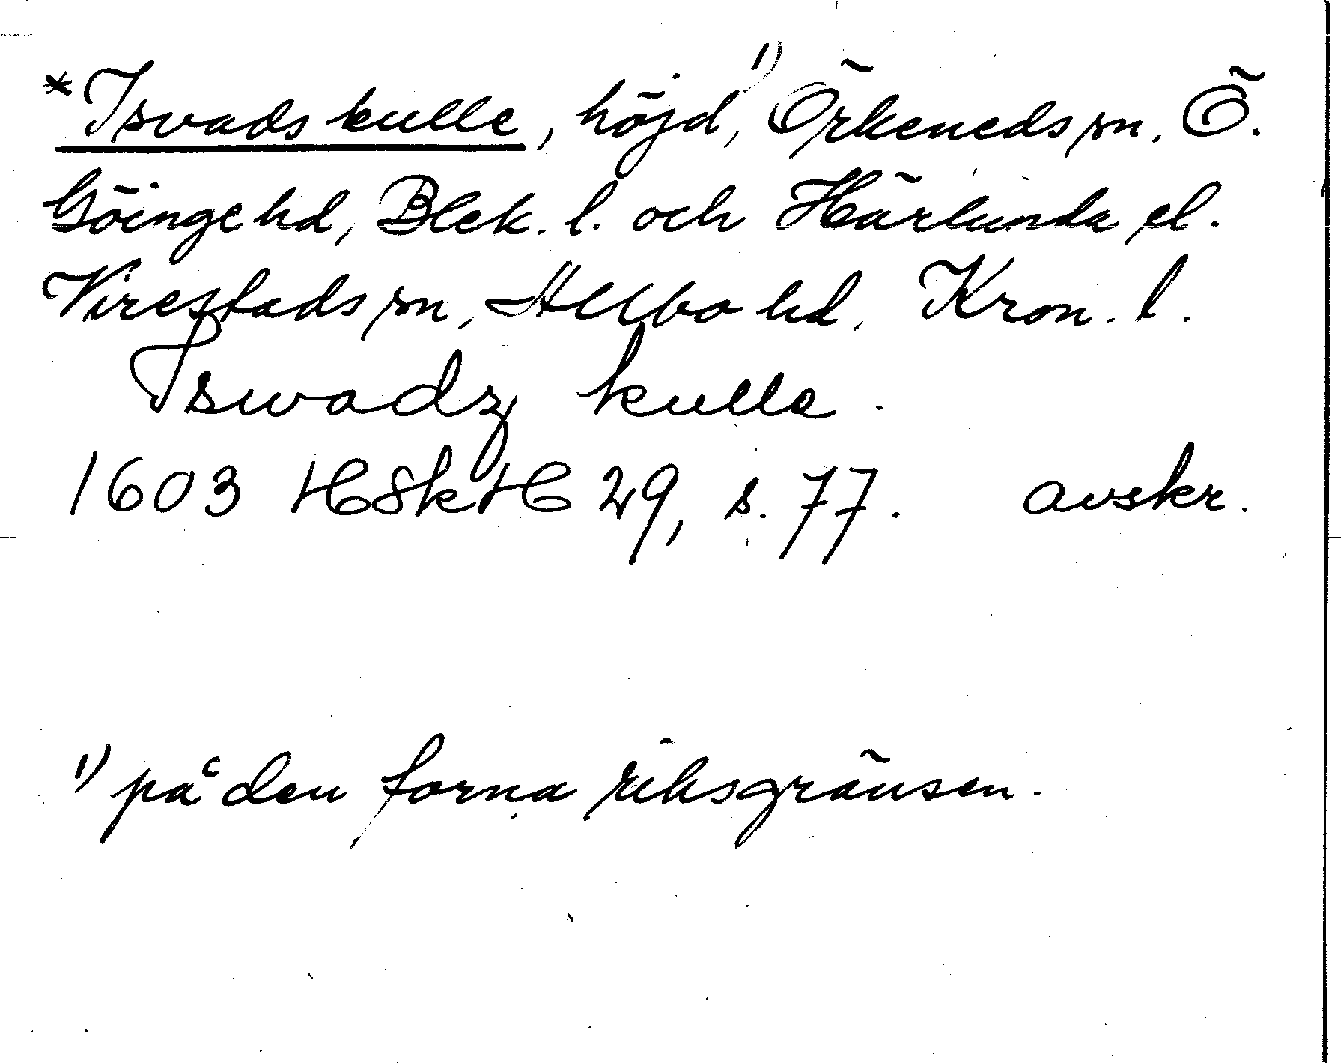 *Isvads kulle, höjd,¹⁾ Örkeneds sn, Ö.
Göinge hd, Blek. l. och Härlunda el.
Virestads sn, Allbo hd, Kron. l.
Iswadz kulle.
1603 HSkH 29, s. 77. avskr.
¹⁾ på den forna riksgränsen.